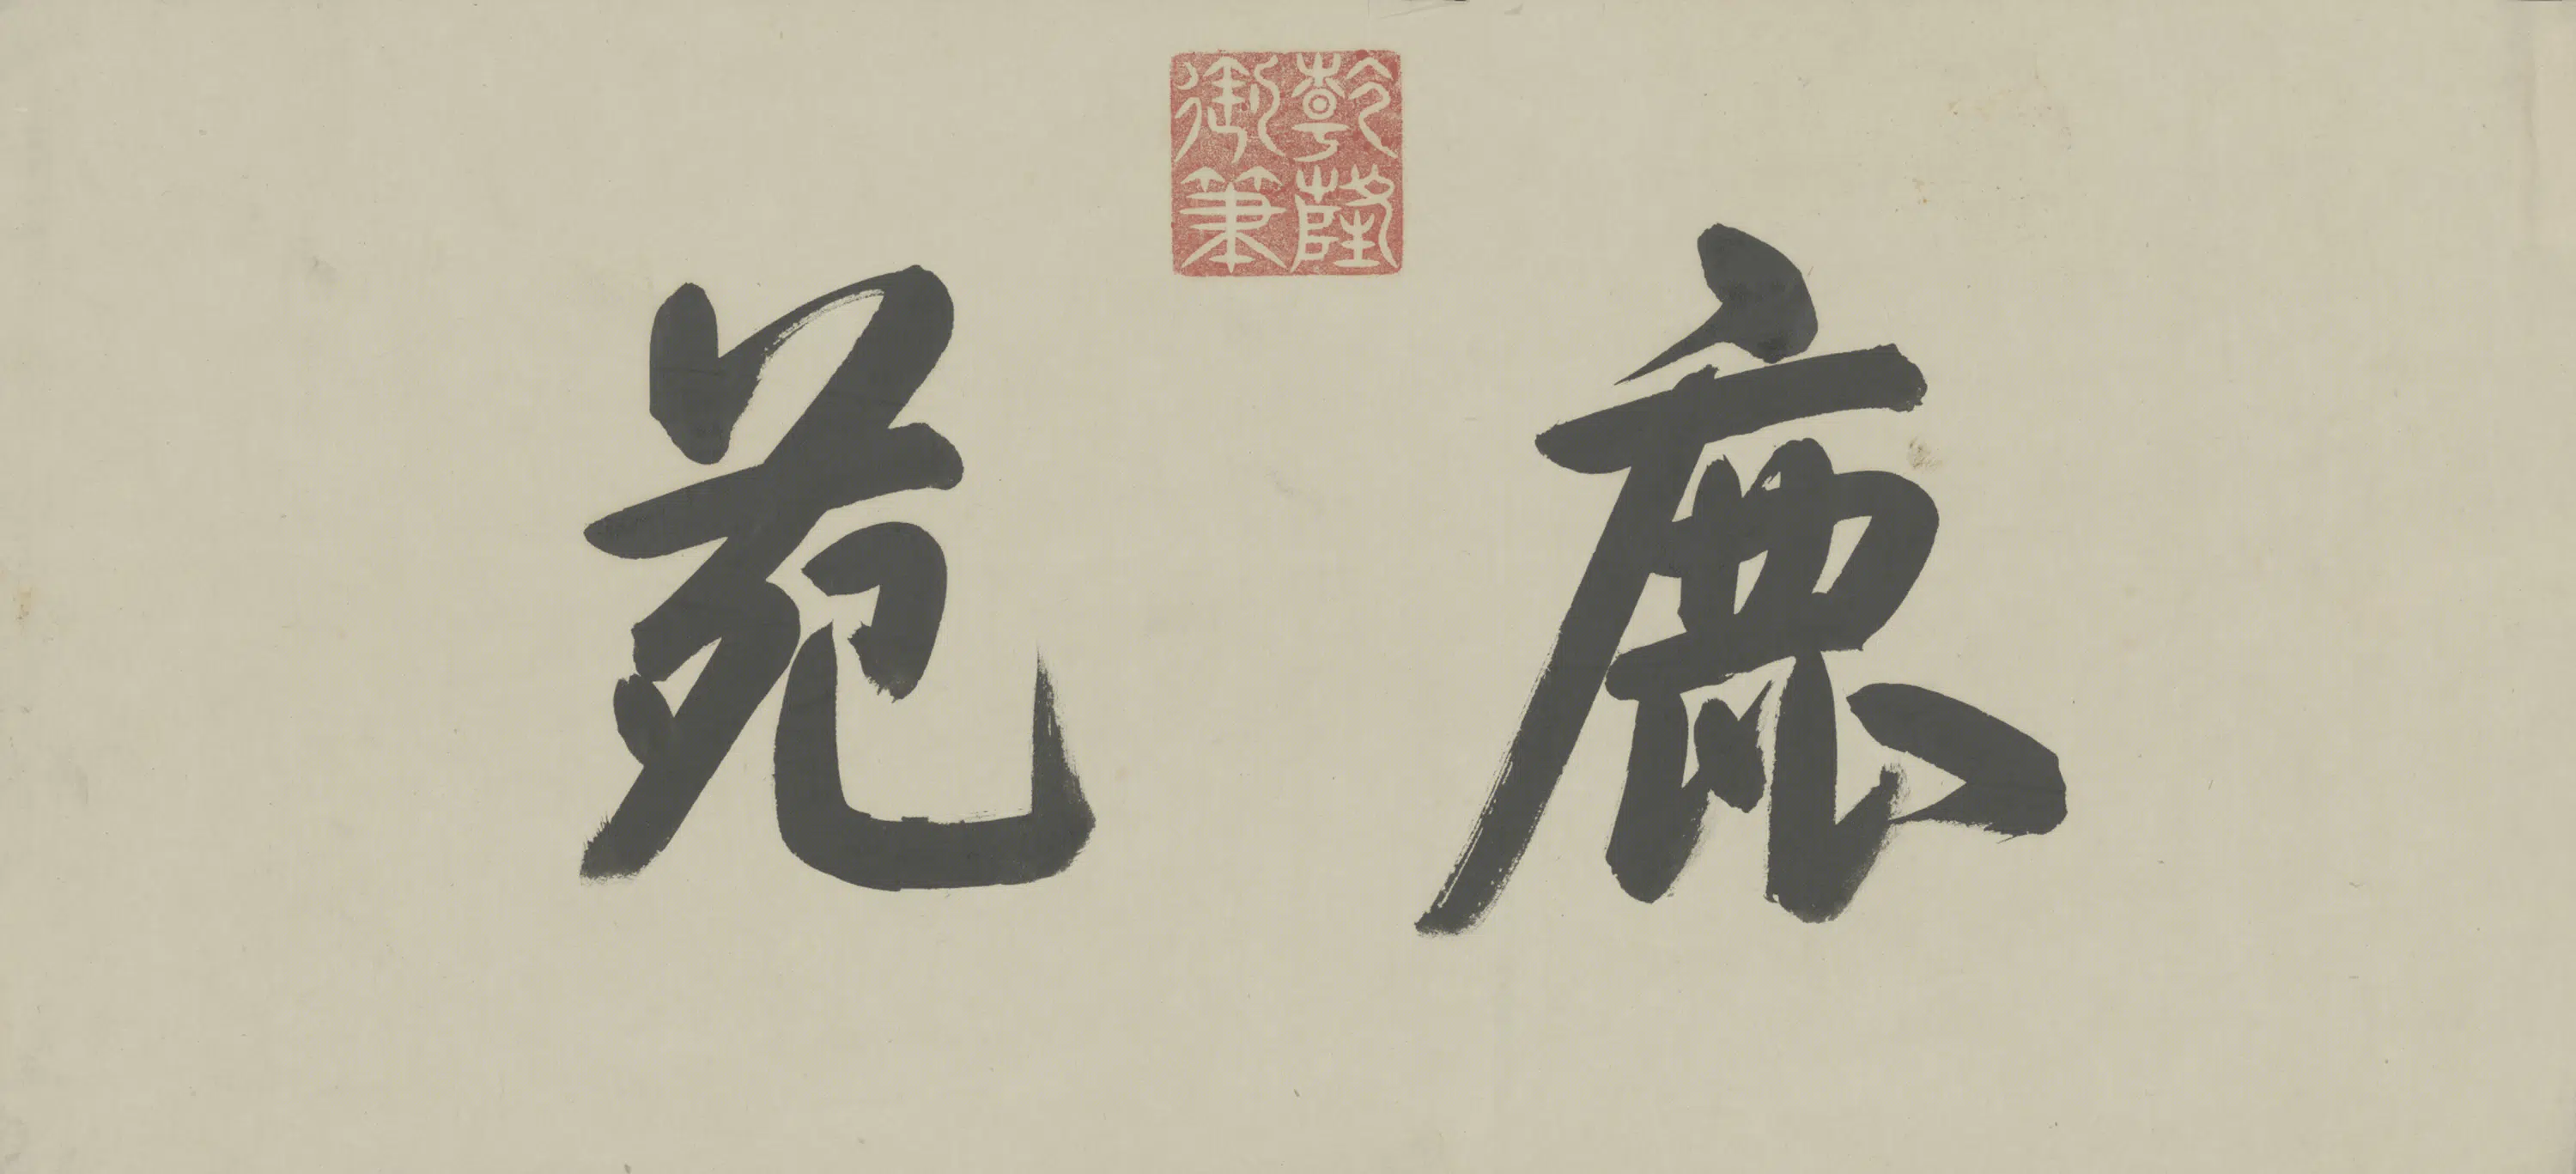 鹿苑
乾隆
御筆